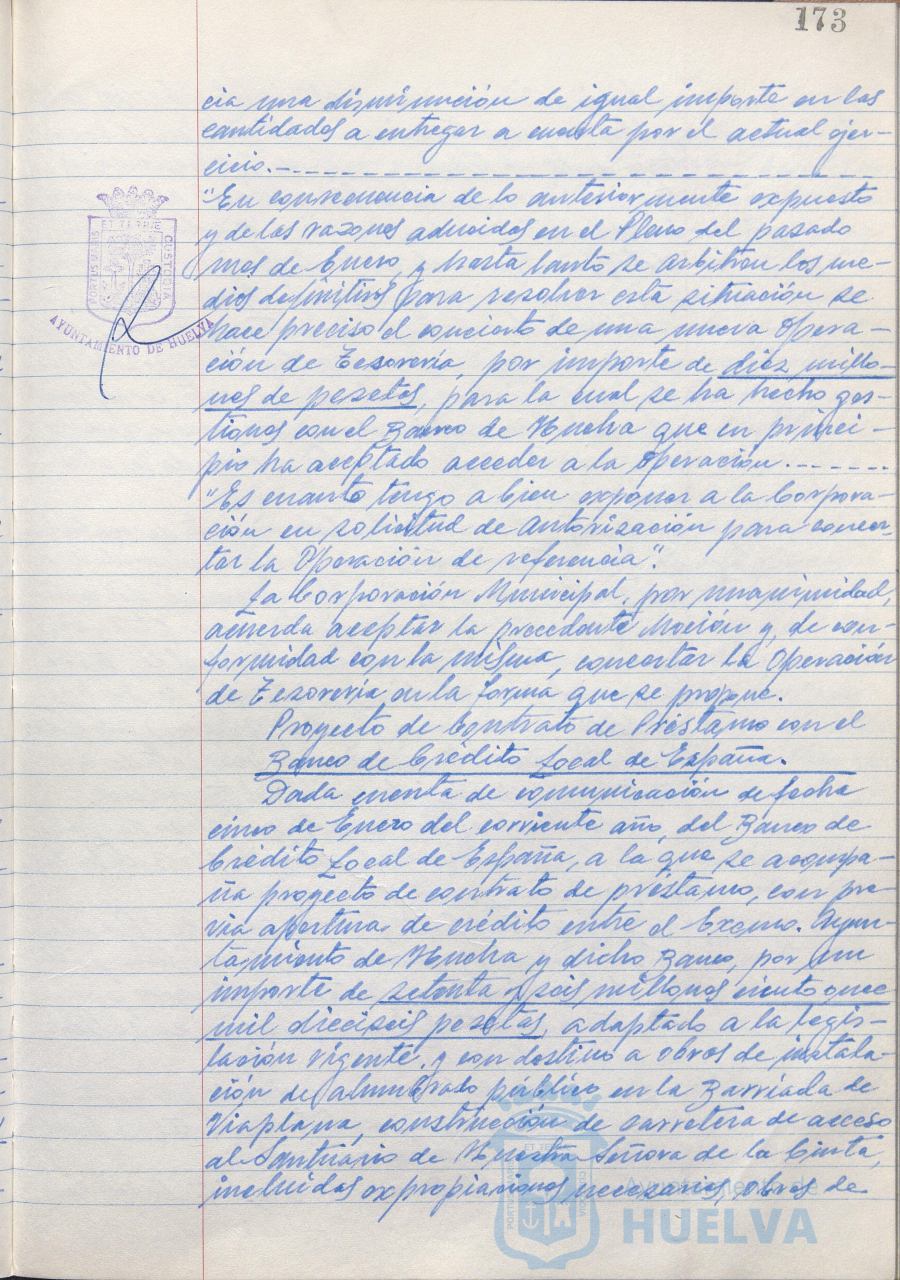 173
cia una disminución de igual importe en las
cantidades a entregar a cuenta por el actual ejer-
cicio.-
"En consecuencia de lo anteriormente expuesto
y de las razones aducidas en el Pleno del pasado
mes de Enero, y hasta tanto se arbitran los me-
dios definitivos para resolver esta situación se
hace preciso el concierto de una nueva Opera-
ción de Tesorería, por importe de diez millo-
nes de pesetas, para la cual se ha hecho ges-
tiones con el Banco de Huelva que en princi-
pio ha aceptado acceder a la Operación.------
"Es cuanto tengo a bien exponer a la Corpora-
ción en solicitud de autorización para concer-
tar la Operación de referencia".
La Corporación Municipal, por unanimidad,
acuerda aceptar la precedente Moción y, de con-
formidad con la misma, concertar la Operación
de Tesorería en la forma que se propone.
Proyecto de Contrato de Préstamo con el
Banco de Crédito Local de España.
Dada cuenta de comunicación de fecha
cinco de Enero del corriente año, del Banco de
Crédito Local de España, a la que se acompa-
ña proyecto de contrato de préstamo, con pre-
via apertura de crédito entre el Excmo. Ayun-
tamiento de Huelva y dicho Banco, por un
importe de setenta y seis millones ciento once
mil dieciseis pesetas, adaptado a la legis-
lación vigente, y con destino a obras de instala-
ción de alumbrado público en la Barriada de
Viaplana, construcción de carretera de acceso
al Santuario de Nuestra Señora de la Cinta,
incluidas expropiaciones necesarias, obras de
PORTUS MARIS
ET TERRAE
CUSTODIA
AYUNTAMIENTO DE HUELVA
Ayuntamiento de
HUELVA